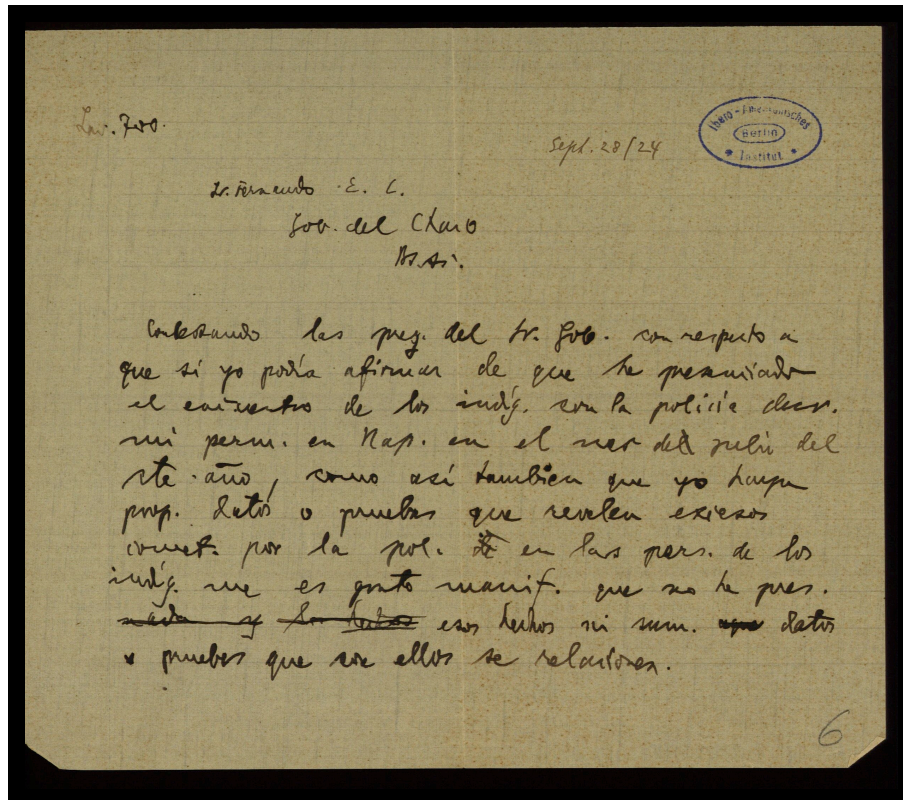 700.
Sept. 28/24
Ibero-Amerikanisches
Berlin
Institut
Sr. Fernando E. C.
Gob. del Chaco
Bs. As.
Contestando las preg. del Sr. Gob. con respecto a
que si yo podía afirmar de que he presenciado
el encuentro de los indíg. con la policía dur.
mi perm. en Nap. en el mes del julio del
cte. año, como así tambien que yo haya
prop. datos o pruebas que revelen excesos
comet. por la pol. en las pers. de los
indíg. me es grato manif. que no he pres.
nada y los hechos esos hechos ni sum. datos
o pruebas que con ellos se relacionen.
6